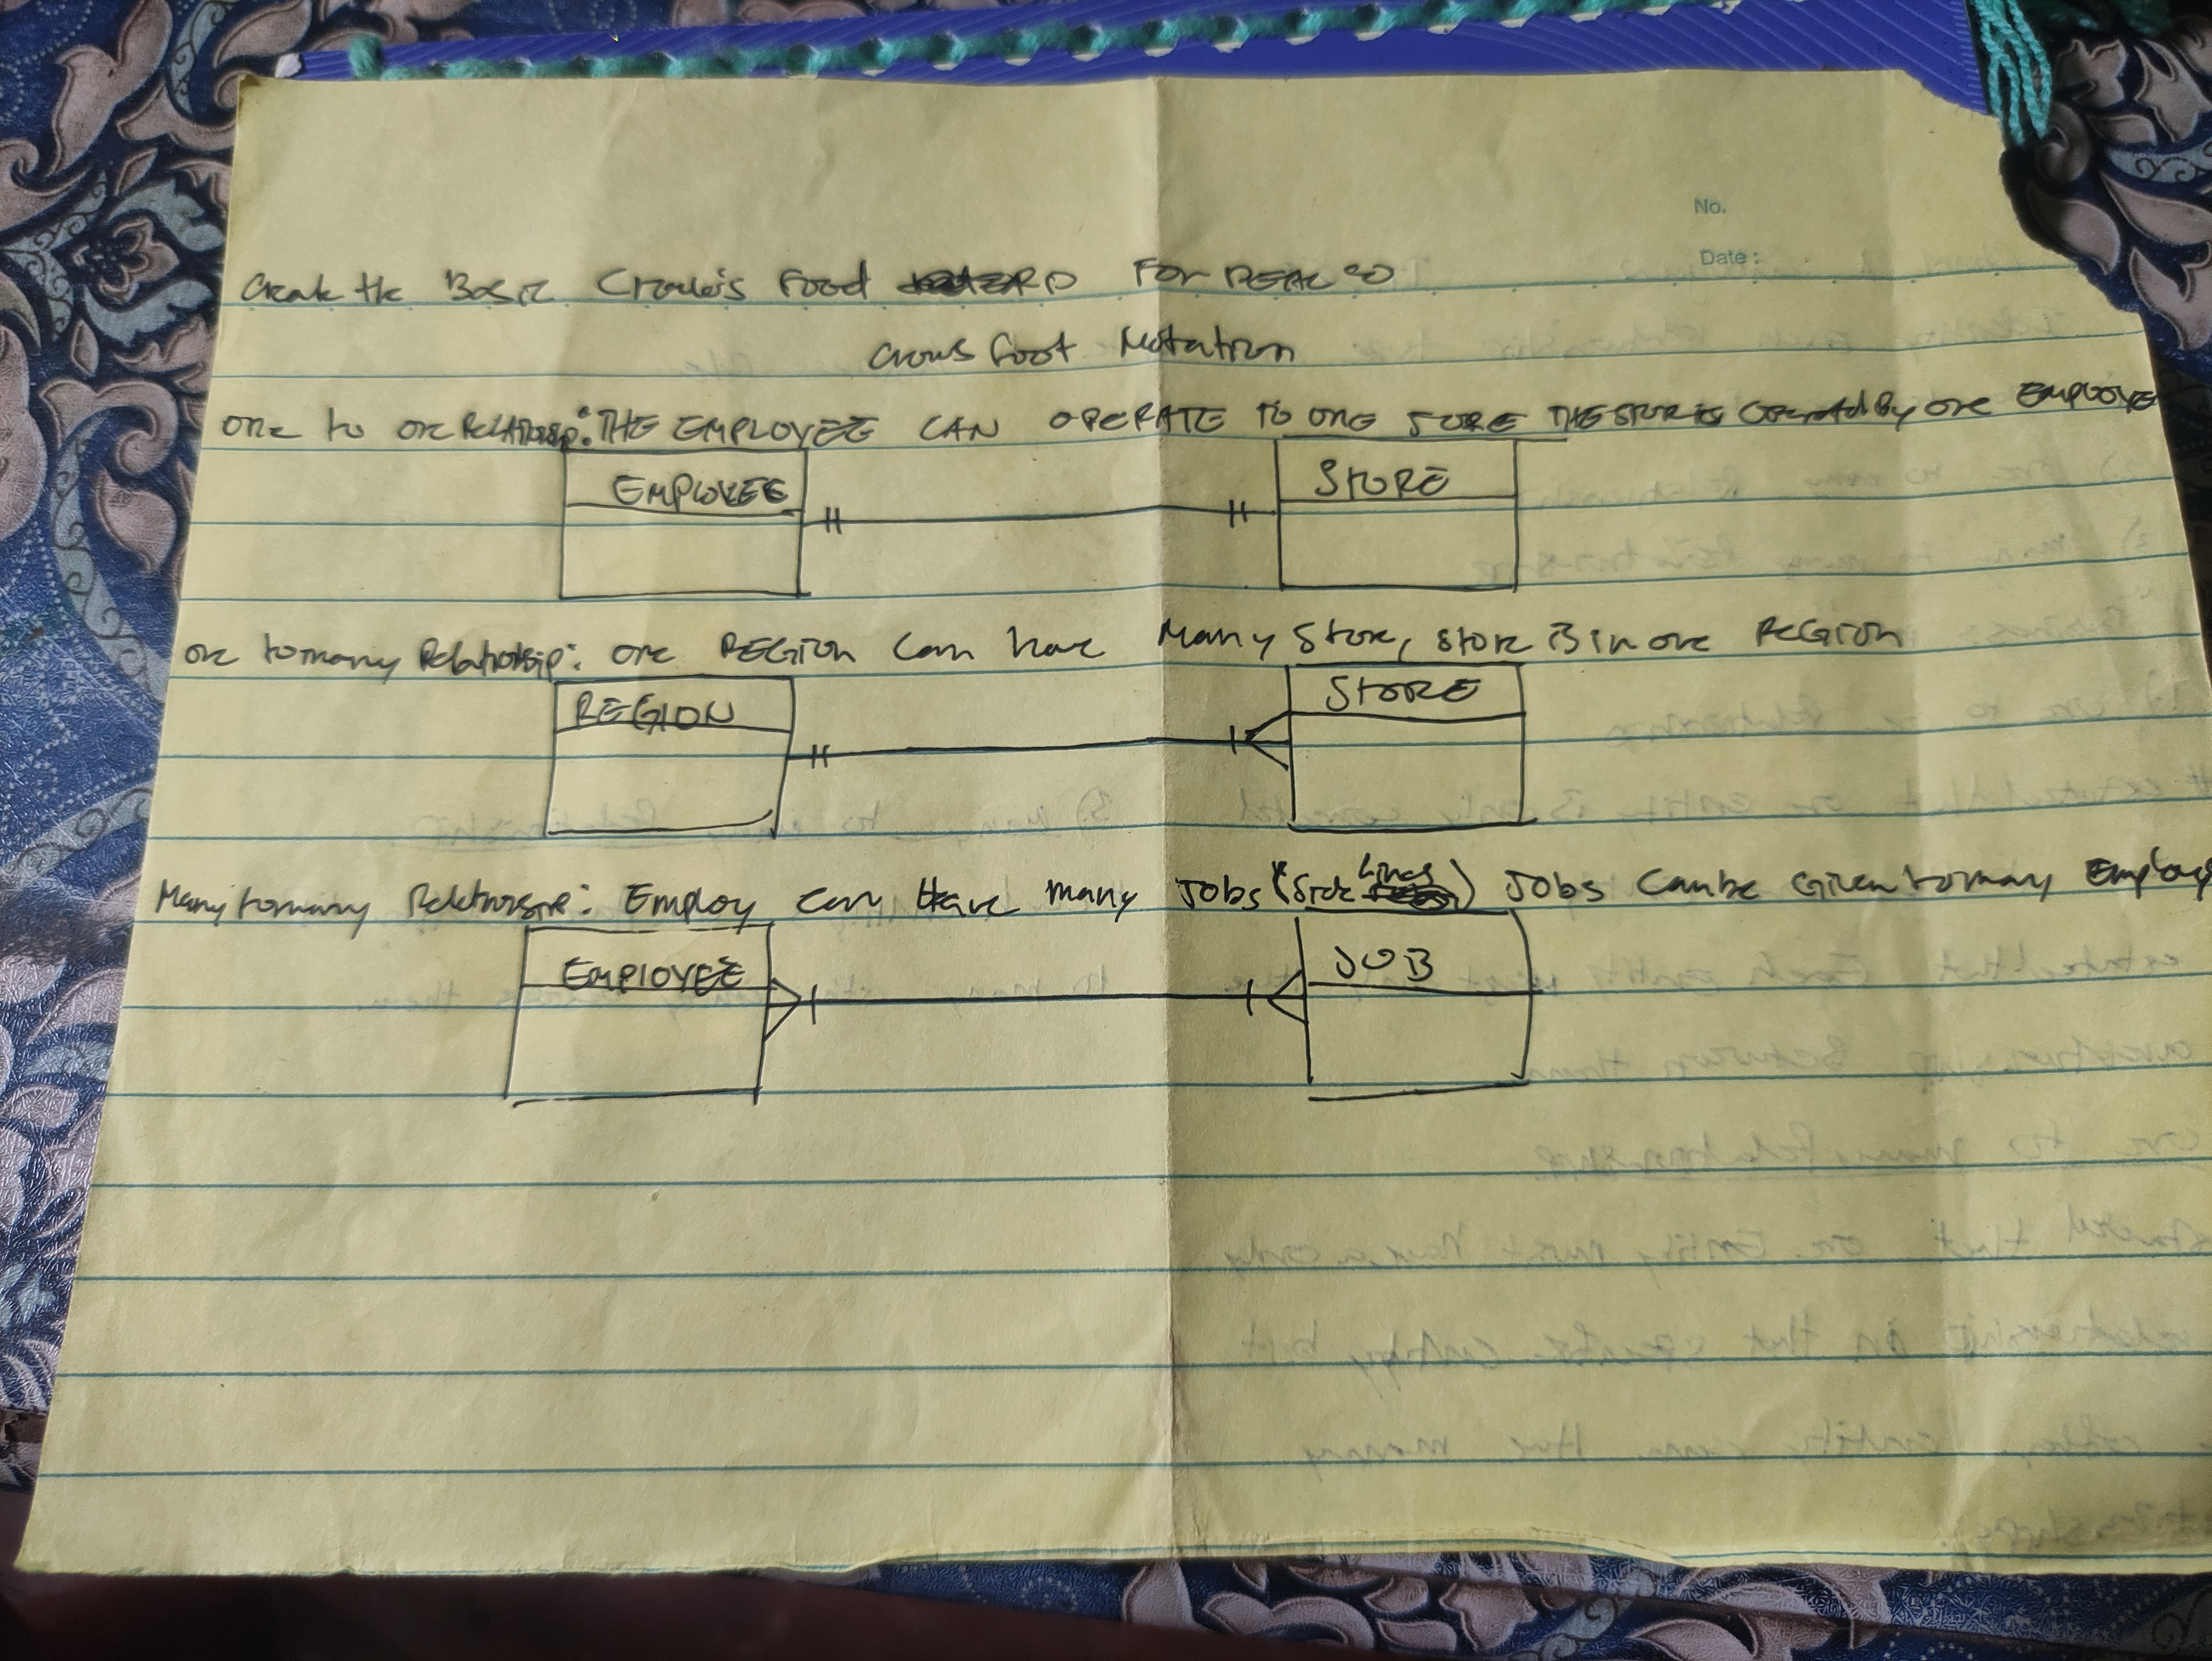 No.
Date:
Create the Basic Crow's Food ERD FOR
Crows Foot Notation
one to one Relationship: THE EMPLOYEE CAN OPERATE TO ONE STORE THE STORE IS Operated By one EMPLOYEE
EMPLOYEE STORE
one to many Relationship: one REGION Can have Many Store, store is in one REGION
REGION STORE
Many to many Relationship: Employ can Have many Jobs ("Side Lines) JOBS Can be Given to many Employ
EMPLOYEE JOB